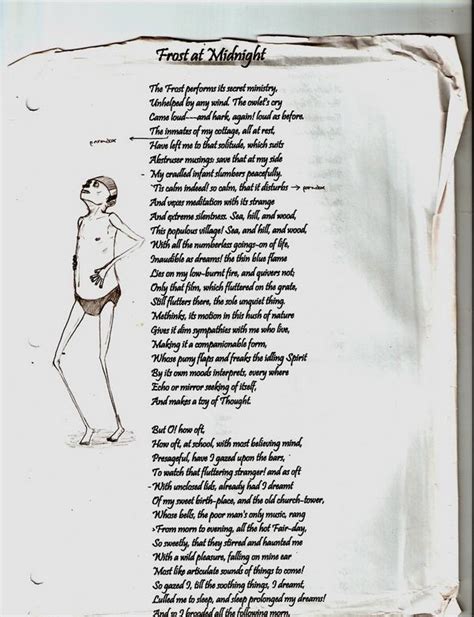 Frost at Midnight
The Frost performs its secret ministry,
Unhelped by any wind. The owlet's cry
Came loud---and hark, again! loud as before.
The inmates of my cottage, all at rest,
Have left me to that solitude, which suits
Abstruser musings: save that at my side
- My cradled infant slumbers peacefully.
'Tis calm indeed! so calm, that it disturbs → paradox
And vexes meditation with its strange
And extreme silentness. Sea, hill, and wood,
This populous village! Sea, and hill, and wood,
With all the numberless goings-on of life,
Inaudible as dreams! the thin blue flame
Lies on my low-burnt fire, and quivers not;
Only that film, which fluttered on the grate,
Still flutters there, the sole unquiet thing.
Methinks, its motion in this hush of nature
Gives it dim sympathies with me who live,
Making it a companionable form,
Whose puny flaps and freaks the idling Spirit
By its own moods interprets, every where
Echo or mirror seeking of itself,
And makes a toy of Thought.
But O! how oft,
How oft, at school, with most believing mind,
Presageful, have I gazed upon the bars,
To watch that fluttering stranger! and as oft
- With unclosed lids, already had I dreamt
Of my sweet birth-place, and the old church-tower,
Whose bells, the poor man's only music, rang
>From morn to evening, all the hot Fair-day,
So sweetly, that they stirred and haunted me
With a wild pleasure, falling on mine ear
Most like articulate sounds of things to come!
So gazed I, till the soothing things, I dreamt,
Lulled me to sleep, and sleep prolonged my dreams!
And so I brooded all the following morn,